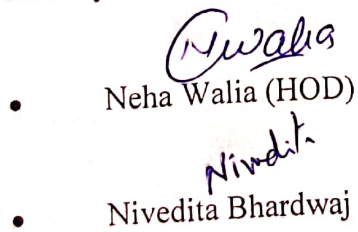 Nwalia
• Neha Walia (HOD)
Nivedita
• Nivedita Bhardwaj